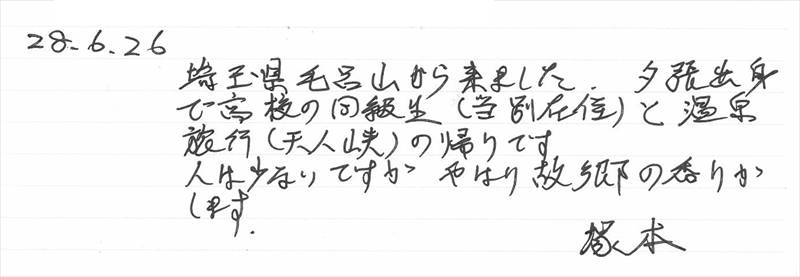 28.6.26
埼玉県毛呂山から来ました. 夕張出身
で高校の同級生(当別在住)と温泉
旅行(天人峡)の帰りです
人は少ないですが やはり故郷の香りが
します.
塚本